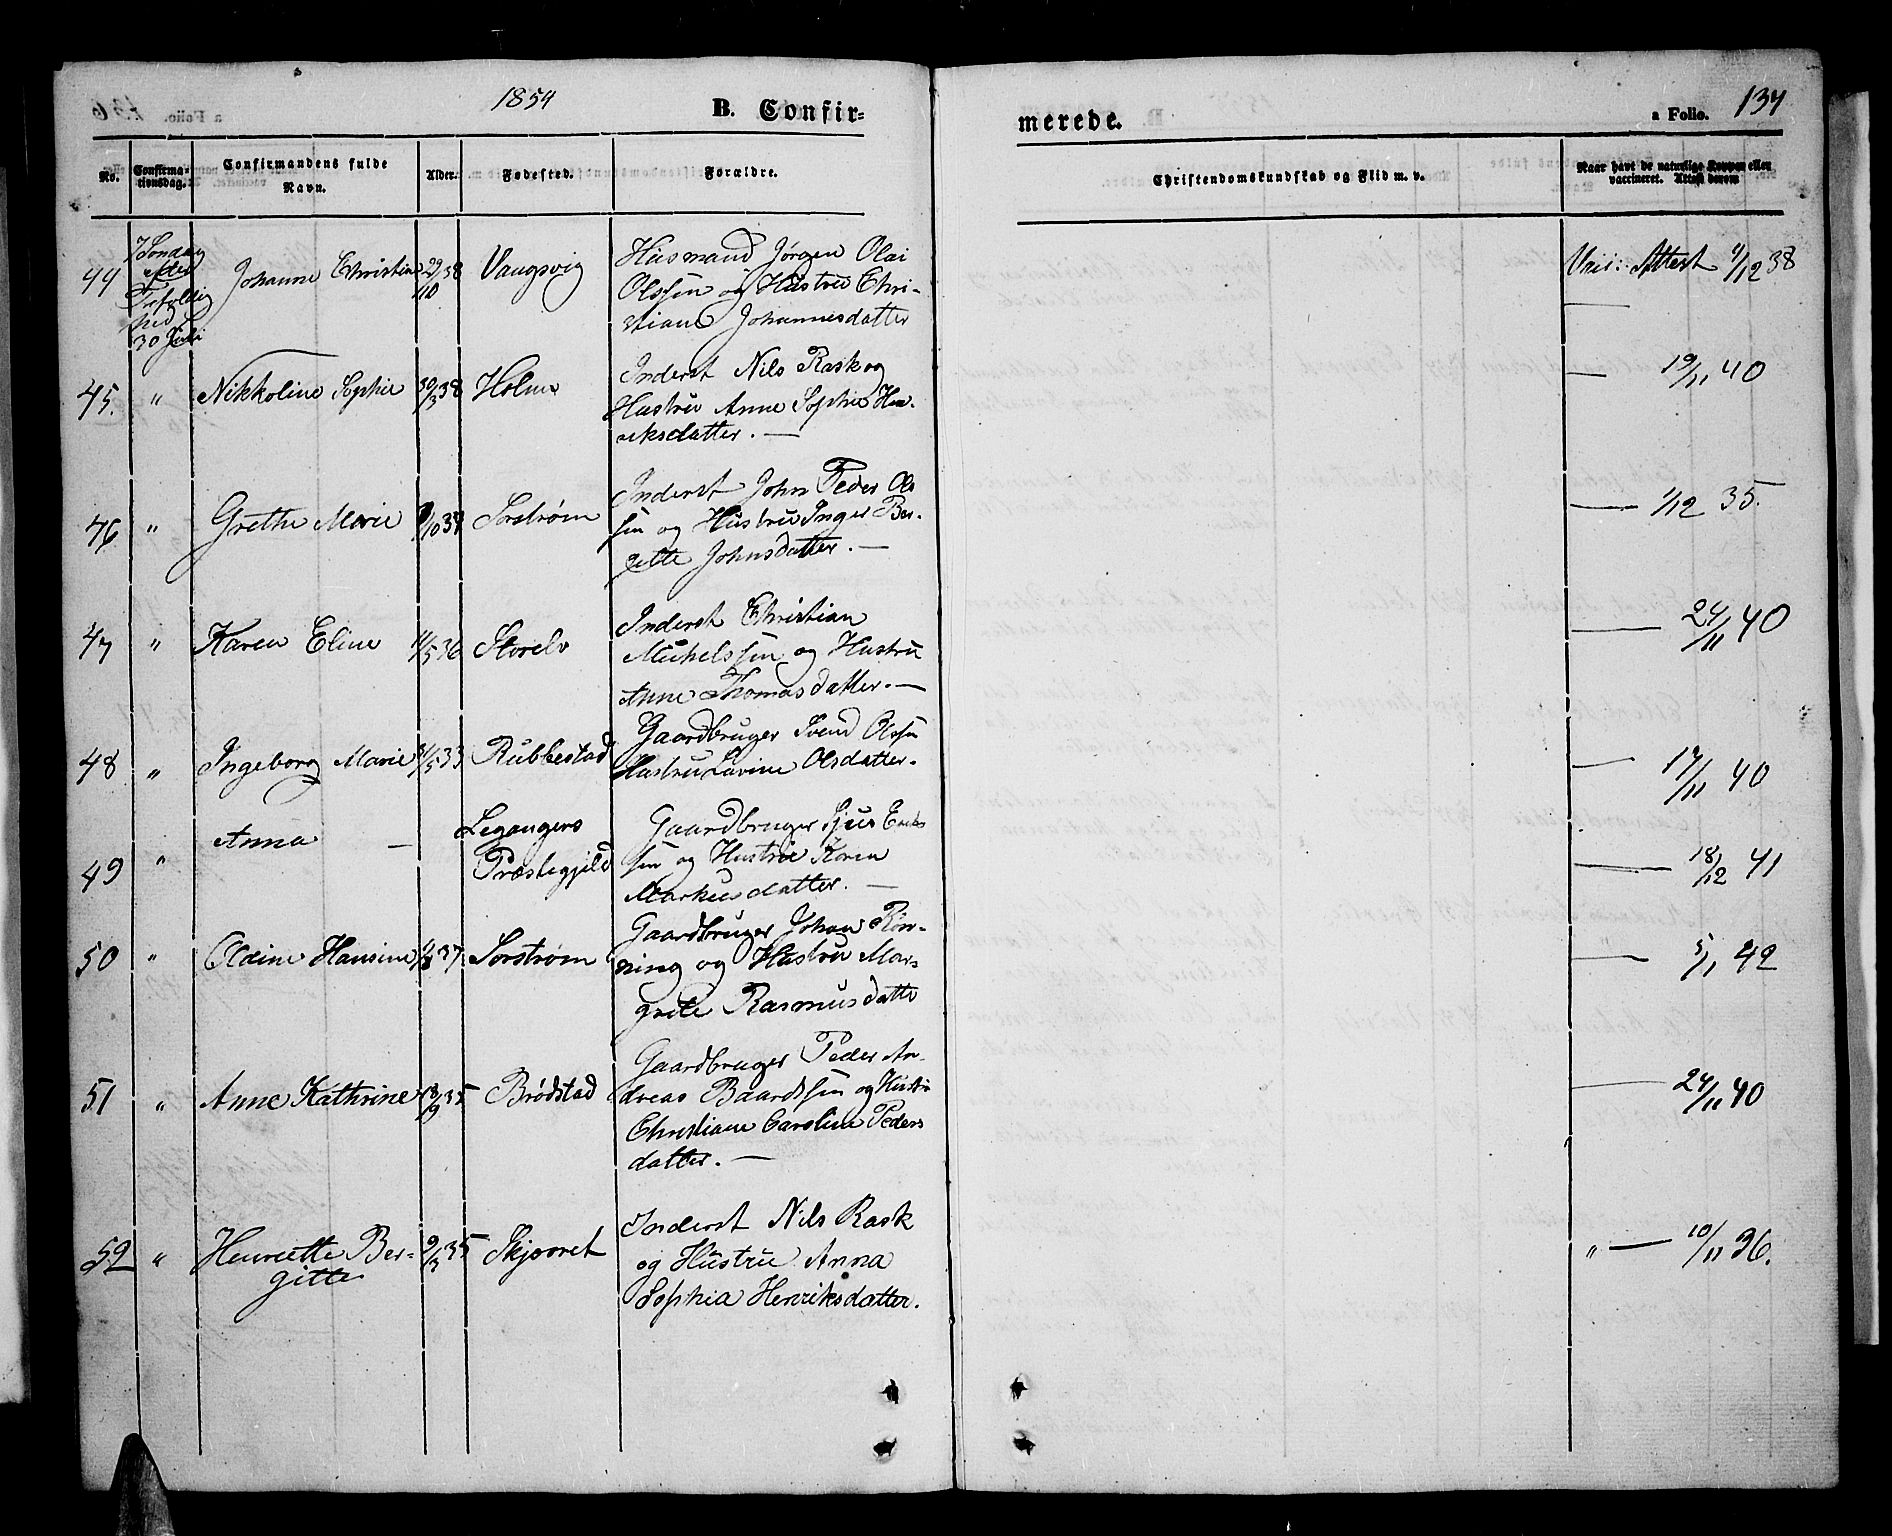 1854
B. Confir-
merede.
a Folio. 137
No.
Confirma-
tionsdag.
Confirmandens fulde
Navn.
Alder.
Fødested.
Forældre.
Christendomskundskab og Flid m. v.
Naar havt de naturlige Kopper eller
vaccineret. Attest derom
44 7 Søndag
efter
Trefoldig
hed
30 Juli
Johanne Christine 29/10 38 Vangsvig
Husmand Jørgen Olai
Olssen og Hustru Chri-
stiane Johannesdatter
Vaci: Attest 4/12 38
45. " Nikkoline Sophie 30/3 38 Holme
Inderst Nils Rask og
Hustru Anne Sophie Hen-
riksdatter. —
— 19/11 40
46. " Grethe Marie /10 37 Sorstrøm
Inderst John Peder Ols
sen og Hustru Inger Ber-
gitte Johnsdatter. —
— 1/12 35.
47 " Karen Eline 11/5 36 Storelv
Inderst Christian
Michelssen og Hustru
Anne Thomasdatter. —
— 24/11 40
48 " Ingeborg Marie /5 33 Rubbestad
Gaardbruger Svend Olssen
Hustru Lavine Olsdatter.
— 17/11 40
49 " Anna — Leganger
Præstegjeld
Gaardbruger Sjur Erik
sen og Hustru Karen
Markusdatter. —
— 18/12 41
50 " Oldine Hansine /8 37 Sorstrøm
Gaardbruger Johan Røn-
ning og Hustru Mar-
grete Rasmusdatte
— 5/11 42
51 " Anne Kathrine 18/9 35 Brødstad
Gaardbruger Peder An-
dreas Baardssen og Hustru
Christiane Caroline Peders
datter. —
— 24/11 40
52 " Henriette Ber-
gitte
9/3 35 Skjævret
Inderst Nils Rask
og Hustru Anna
Sophia Henriksdatter.
" — 10/11 36.